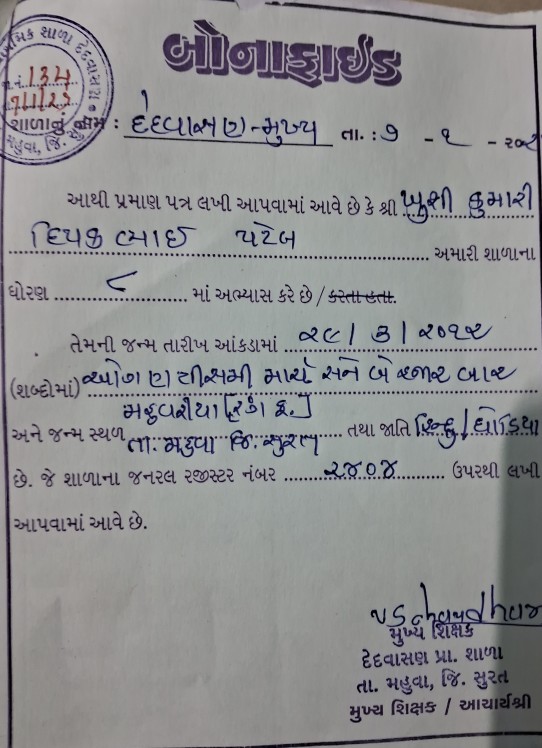 બોનાફાઈડ
પ્રાથમિક શાળા દેદવાસણ
જા.નં. 134
મહુવા, જિ.
શાળાનું નામ : દેદવાસણ-મુખ્ય તા. : ૭ - ૧ - ૨૦૨
આથી પ્રમાણ પત્ર લખી આપવામાં આવે છે કે શ્રી ખુશી કુમારી
દિપકભાઈ પટેલ અમારી શાળાના
ધોરણ ૮ માં અભ્યાસ કરે છે / કરતા હતા.
તેમની જન્મ તારીખ આંકડામાં ૨૯ / ૩ / ૨૦૧૨
(શબ્દોમાં) ઓગણત્રીસમી માર્ચ સને બે હજાર બાર
મહુવરીયા
અને જન્મ સ્થળ તા. મહુવા જિ. સુરત તથા જાતિ હિન્દુ / ધોડિયા
છે. જે શાળાના જનરલ રજીસ્ટર નંબર ૨૪૦૪ ઉપરથી લખી
આપવામાં આવે છે.
મુખ્ય શિક્ષક
દેદવાસણ પ્રા. શાળા
તા. મહુવા, જિ. સુરત
મુખ્ય શિક્ષક / આચાર્યશ્રી